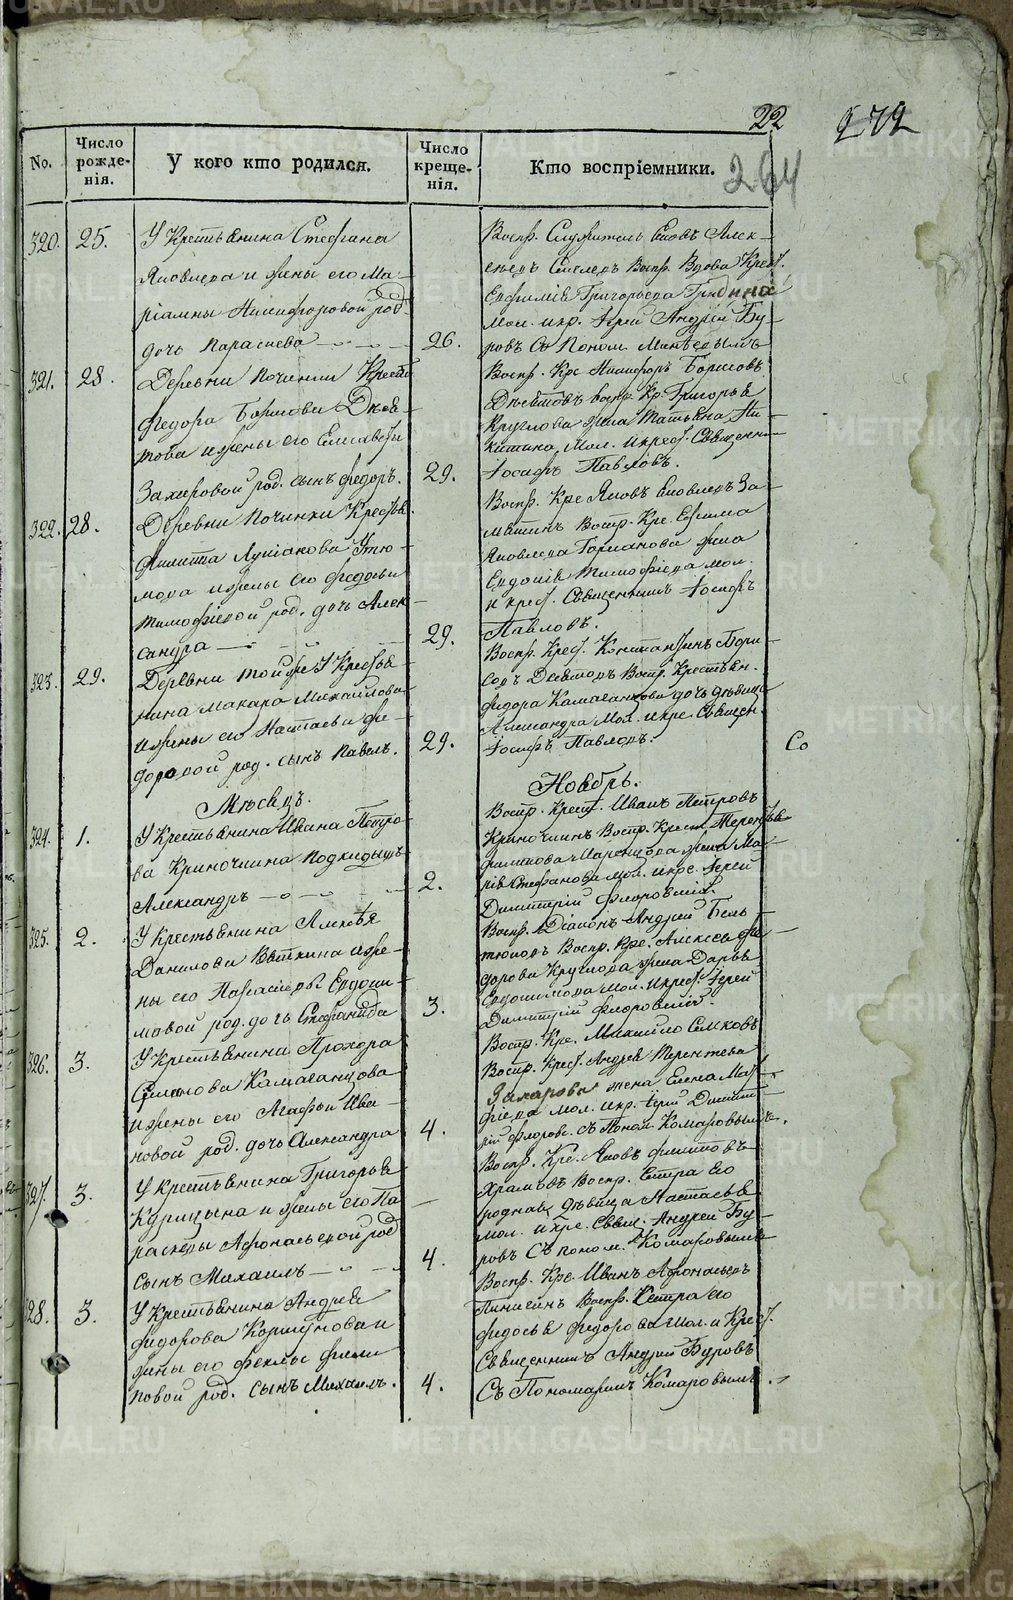 22
272
264
No.
Число рожде-нія.
У кого кто родился.
Число креще-нія.
Кто воспріемники.
320. 25. У Крестьянина Стефана
Яковлева и жены его Ма-
ріамны Никифоровой род.
дочь Параскева 26.
Воспр. Служитель
Воспр. Вдова Крест.
Евфимія Григорьева
мол. икр. Іерей Андрей Бу-
ровъ Съ Поном.
321. 28. Деревни Починки Крест.
Федора Борисова
това и жены его Елисаветы
Захаровой род. сынъ Федоръ. 29.
Воспр. Кре Никифоръ Борисовъ
воспр. Кр. Григорья
Круглова жена Татьяна Ни-
китина Мол. и крест. Священн
Іосифъ Павловъ.
322. 28. Деревни Починки Кресть.
Филиппа Лукіанова
и жены его Федосьи
Тимофеевой род. дочь Алек
сандра 29.
Воспр. Кре Яковъ Яковлевъ За-
Воспр. Кре. Ефима
Яковлева жена
Евдокія Тимофеева мол.
и крест. Священникъ Іосифъ
Павловъ.
323. 29. Деревни Той же У Кресть-
нина Макара Михайлова
и жены его Настасьи Фе-
доровой род. сынъ Павелъ. 29.
Воспр. Крест. Константинъ Бори
совъ Воспр. Крестьян.
Федора Камаганцова дочь девица
Александра Мол. и кре. Священ.
Іосифъ Павловъ.
Со
Мѣсецъ. Ноябрь.
324. 1. У Крестьянина Ивана Петро-
ва Криночкина Подкидышъ
Александръ 2.
Воспр. Крест. Иванъ Петровъ
Криночкинъ Воспр. Крест. Терентья
жена Ма-
рія Стефанова мол. икре. Іерей
Димитрій Флоровскій.
325. 2. У Крестьянина Алексѣя
Данилова Вяткина и же-
ны его Параскевы Евдоки-
мовой род. дочь Стефанида 3.
Воспр. Діаконъ Андрей Бель
тюковъ Воспр. Кре. Алексея Фе-
дорова Круглова жена Дарья
Евдокимова мол. икрест. Іерей
Димитрій Флоровскій.
326. 3. У Крестьянина Прохора
Симанова Камаганцова
и жены его Агафьи Ива-
новой род. дочь Александра 4.
Воспр. Кре. Михаило Симковъ
Воспр. Крест. Андрея Терентьева
Захарова жена Елена Мат-
фіева мол. икр. Іерей Димит
рій Флоровс. съ Поном Комаровымъ.
327. 3. У крестьянина Григорья
Курицына и жены его Па-
раскевы Афонасьевой род
сынъ Михаилъ 4.
Воспр. Кре. Яковъ Филиповъ
Храмовъ Воспр. Сестра его
родная девица Настасья
мол. и кре. Свящ. Андрей Бу-
ровъ Съ поном. Комаровымъ
328. 3. У Крестьянина Андрея
Федорова Коршунова и
жены его Феклы Фили
повой род. сынъ Михаилъ. 4.
Воспр. Кре. Иванъ Афонасьевъ
Пинигинъ Воспр. Сестра его
Федосья Федорова Мол. и Крест.
Священникъ Андрей Буровъ
Съ Пономаремъ Комаровымъ.
METRIKI.GASU-URAL.RU